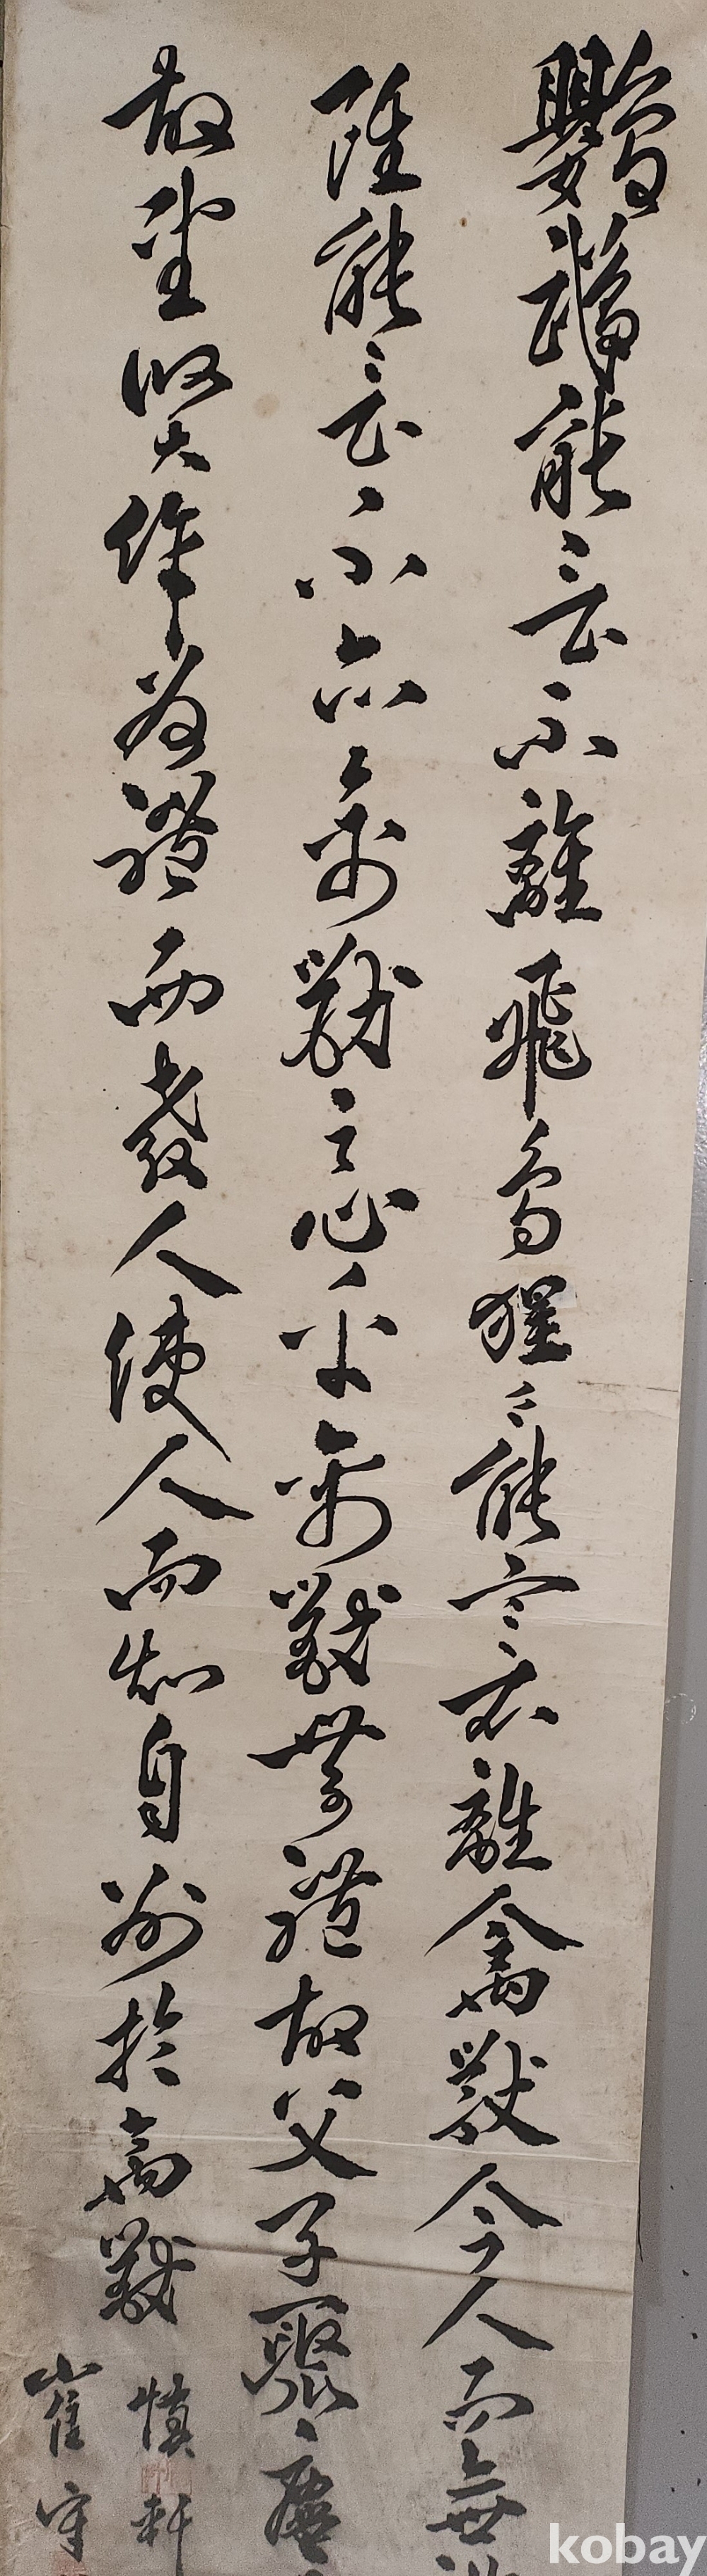 鸚鵡能言不離飛鳥猩〻能言不離禽獸今人而無
雖能言不亦禽獸之心乎禽獸無禮故父子聚麀
故聖賢作為禮而教人使人而知自別於禽獸
慎軒
崔守
kobay